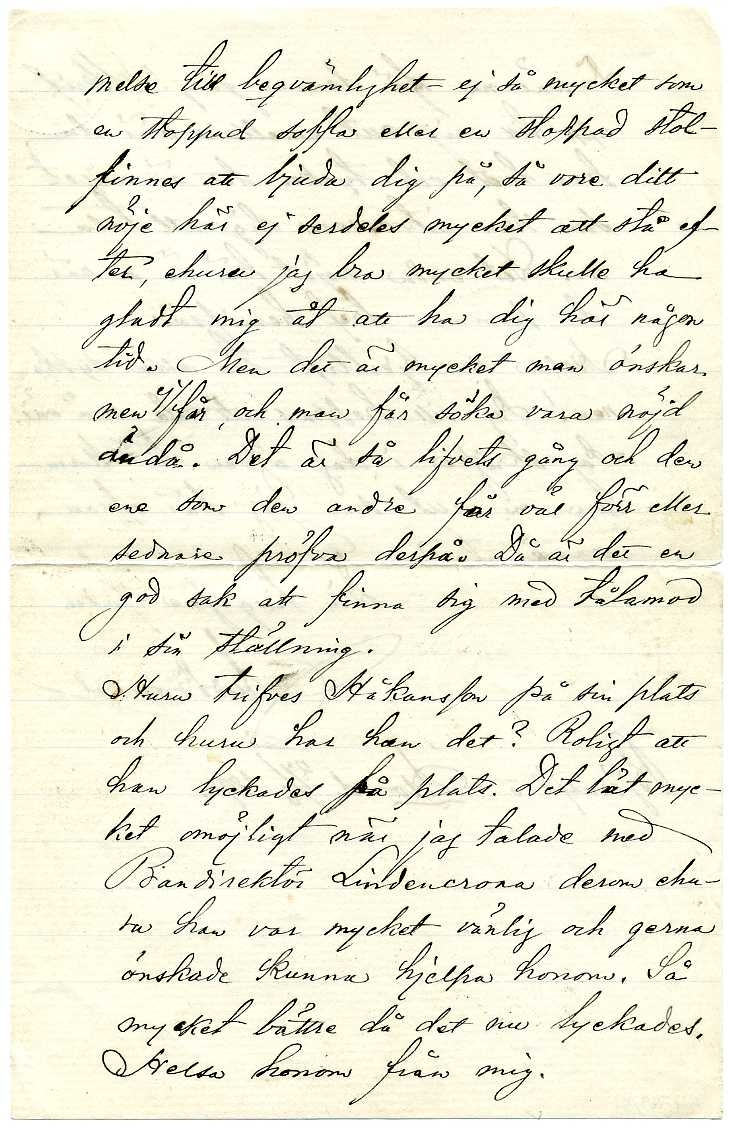 melse till beqvämlighet – ej så mycket som
en stoppad soffa eller en stoppad stol –
finnes att bjuda dig på, så vore ditt
nöje här ej serdeles mycket att stå ef-
ter, churu jag bra mycket skulle ha
gladt mig åt att ha dig här någon
tid. Men det är mycket man önskar
men ej får, och man får söka vara nöjd
ändå. Det är så lifvets gång och den
ene som den andre får väl förr eller
sednare pröfva derpå. Då är det en
god sak att finna sig med tålamod
i sin ställning.
Huru trifves Håkansson på sin plats
och huru har han det? Roligt att
han lyckades få plats. Det lät myc-
ket omöjligt när jag talade med
Bandirektör Lindencrona derom ehu-
ru han var mycket vänlig och gerna
önskade kunna hjelpa honom. Så
mycket bättre då det nu lyckades.
Helsa honom från mig.